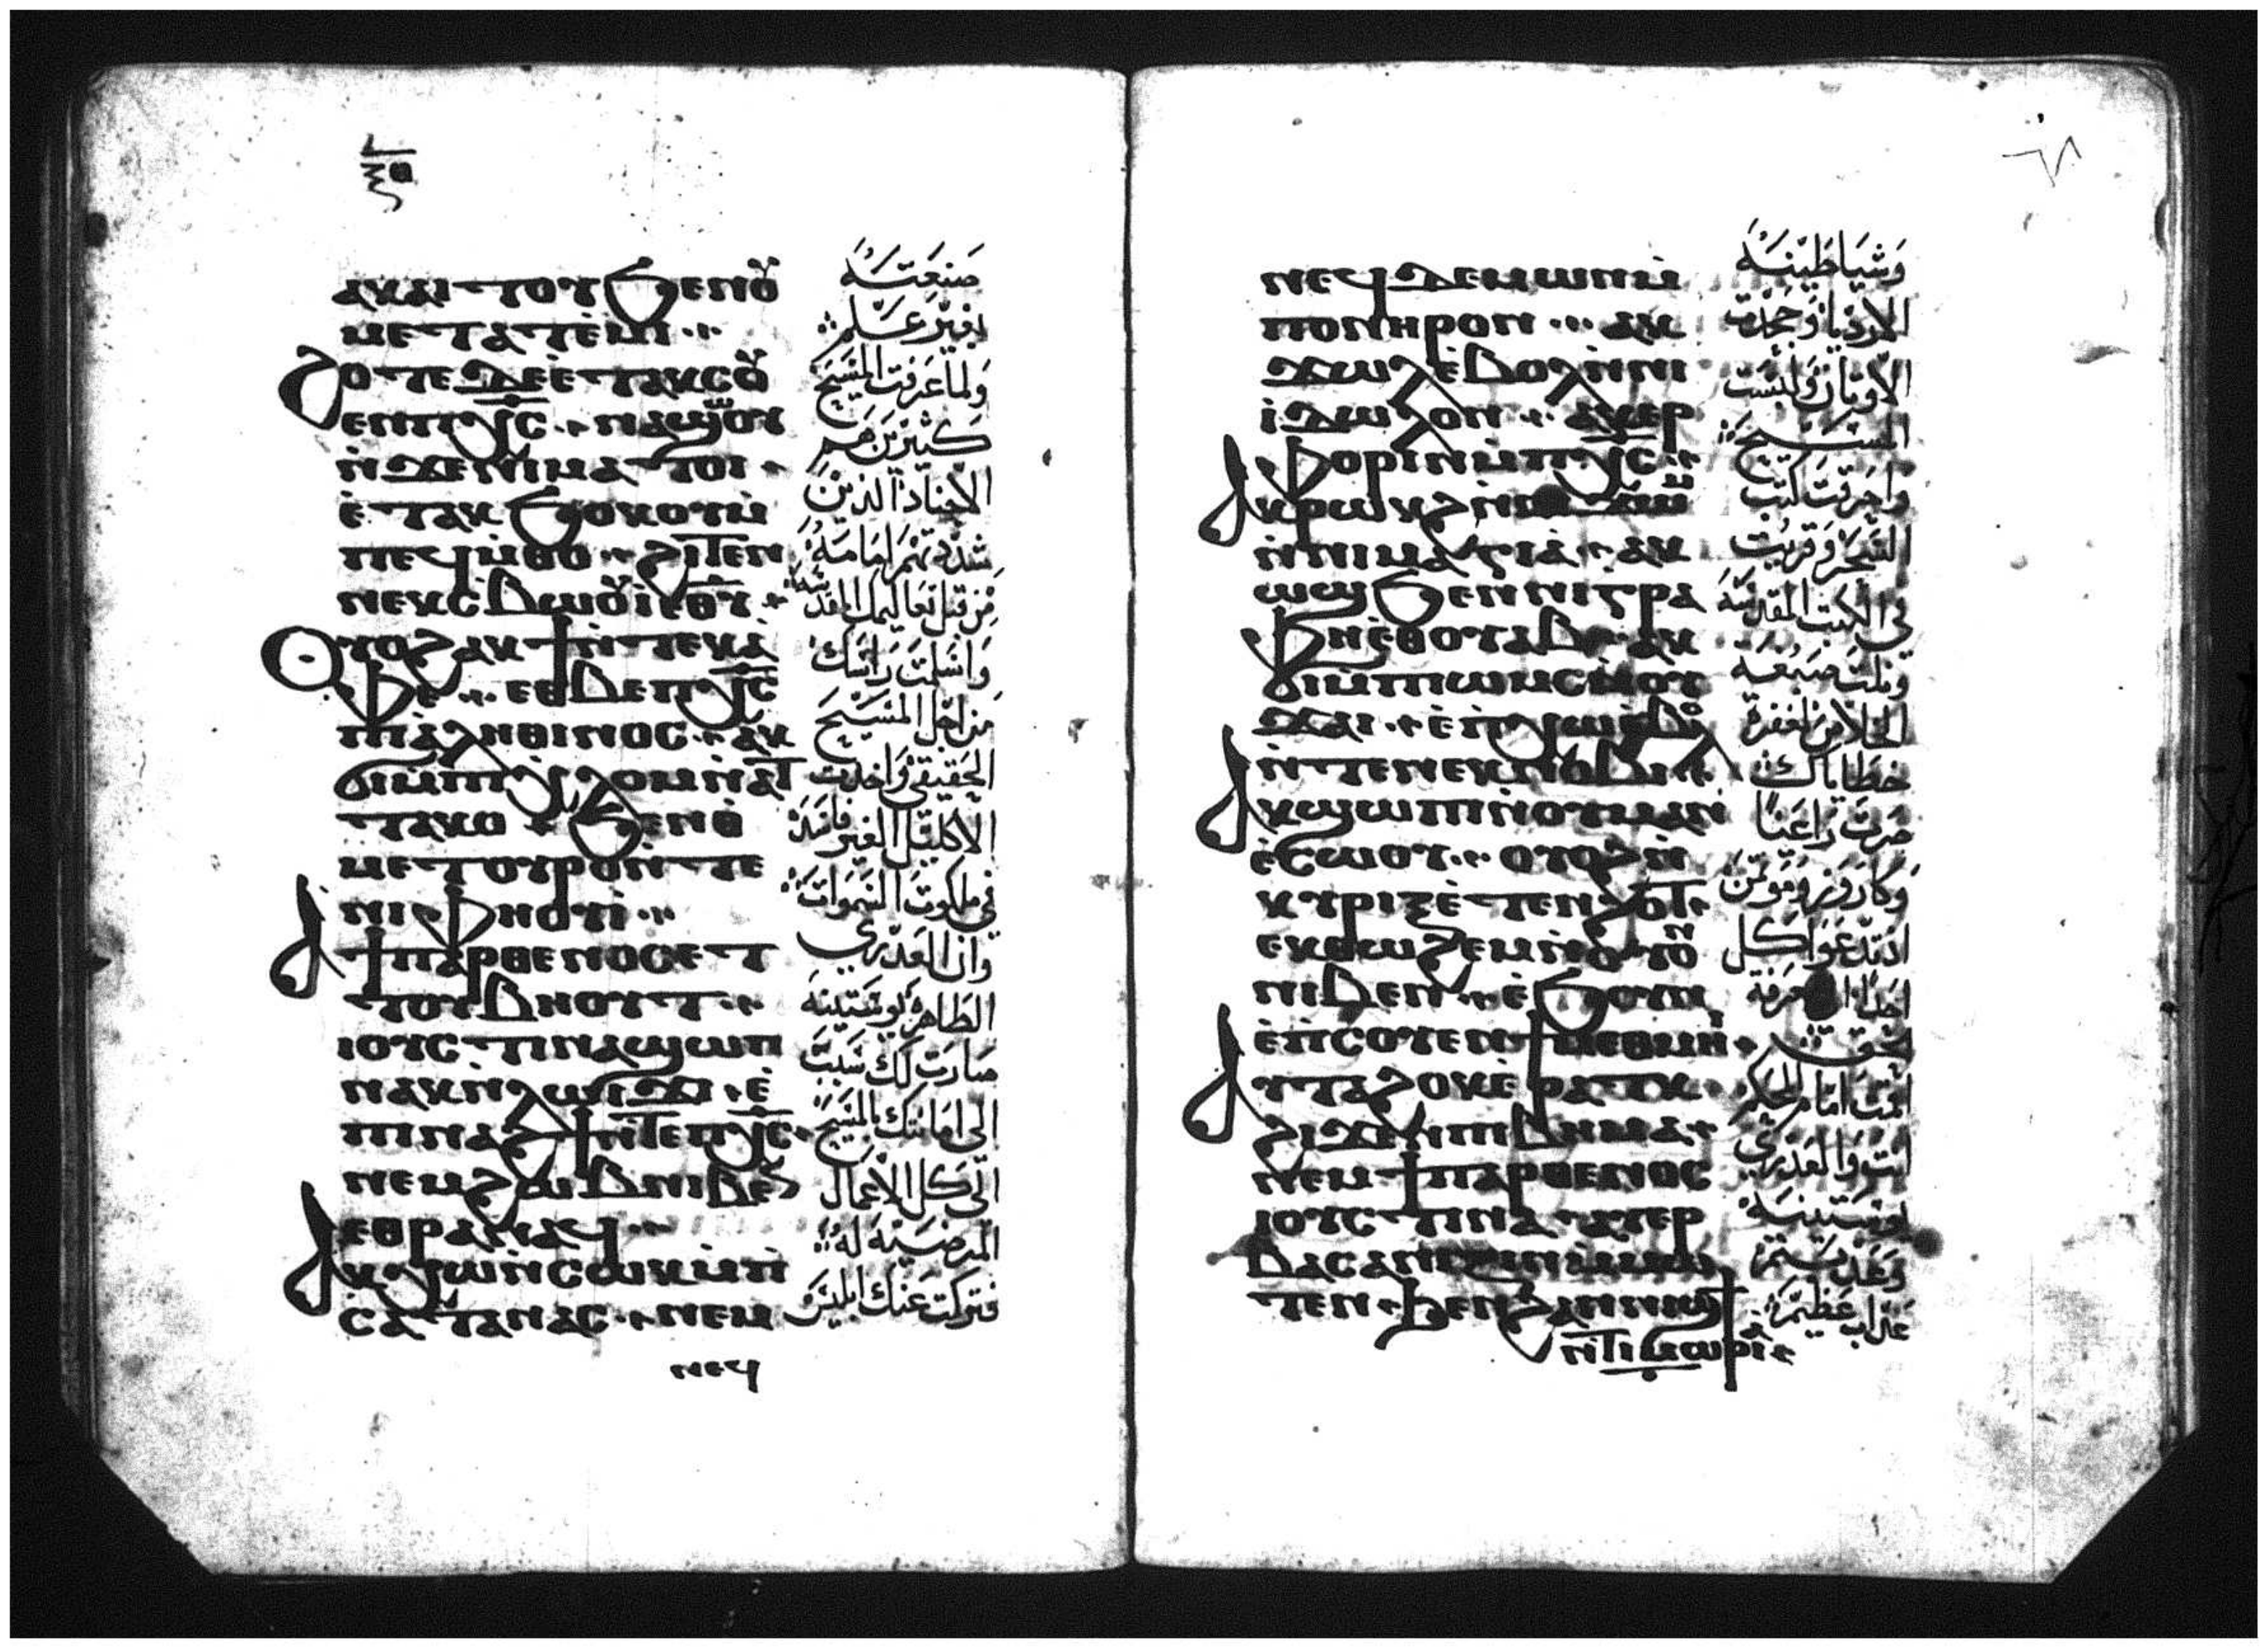 ⲁⲕⲁⲓⲧⲟⲩ ϧⲉⲛⲟⲩ
ⲙⲉⲧⲁⲧⲉⲙⲓ
ϩⲟⲧⲉ ⲇⲉ ⲉⲧⲁⲕⲥⲟⲩ
ⲉⲛ ⲡⲭⲥ ⲛⲁϣⲱⲟⲩ
ⲛϫⲉ ⲛⲓⲙⲁⲧⲟⲓ
ⲉⲧⲁⲕϭⲟϫⲟⲩ ⲙ
ⲡⲉϥⲙⲑⲟ ϩⲓⲧⲉⲛ
ⲛⲉⲕⲥⲃⲱⲟⲩⲓ ⲉⲑⲩ
ⲟⲩⲟϩ ⲁⲕϯ ⲛⲧⲉⲕⲁ
ⲫⲉ ⲉⲑⲃⲉ ⲡⲭⲥ
ⲡⲓⲁⲗⲏⲑⲓⲛⲟⲥ ⲁⲕ
ϭⲓ ⲙⲡⲓⲭⲗⲟⲙ ⲛⲁⲧ
ⲧⲁⲕⲟ ϧⲉⲛ ⲑ
ⲙⲉⲧⲟⲩⲣⲟ ⲛⲧⲉ
ⲛⲓⲫⲏⲟⲩⲓ
ⲁ ϯⲡⲁⲣⲑⲉⲛⲟⲥ ⲉⲧ
ⲧⲟⲩⲃⲏⲟⲩⲧ
ⲓⲟⲩⲥⲧⲓⲛⲁ ϣⲱⲡⲓ
ⲛⲁⲕ ⲛⲗⲱⲓϫⲓ ⲉ
ⲡⲓⲛⲁϩϯ ⲛⲧⲉ ⲡⲭⲥ
ⲛⲉⲙ ϩⲱⲃ ⲛⲓⲃⲉⲛ
ⲉⲑⲣⲁⲛⲁϥ
ⲁⲕⲭⲱ ⲛⲥⲱⲕ ⲙⲡ
ⲥⲁⲧⲁⲛⲁⲥ ⲛⲉⲙ
ⲛⲉϥ
صنعته
بغير علم
ولما عرفت المسيح
كثيرين هم
الاجناد الذين
من قبل تعاليمك المقدسة
واسلمت راسك
من اجل المسيح
الحقيقي واخدت
الاكليل الغير فاسد
في ملكوت السموات
وان العدري
الطاهرة يوستينه
صارت لك سبب
الى امانتك بالمسيح
الى كل الاعمال
المرضيه له
فتركت عنك ابليس
ⲛⲉϥⲇⲉⲙⲱⲛ ⲙ
ⲡⲟⲛⲏⲣⲟⲛ ⲁⲕ
ϫⲱⲗ ⲉⲃⲟⲗ ⲛⲛⲓ
ⲓⲇⲱⲗⲟⲛ ⲁⲕⲉⲣ
ⲫⲟⲣⲓⲛ ⲙⲡⲭⲥ
ⲁⲕⲣⲱⲕϩ ⲛⲛⲓϫⲱⲙ
ⲛⲛⲓⲙⲁⲅⲓⲁ ⲁⲕ
ⲱϣ ϧⲉⲛ ⲛⲓⲅⲣⲁ
ⲫⲏ ⲉⲑⲟⲩⲁⲃ ⲁⲕ
ϭⲓ ⲙⲡⲓⲱⲙⲥ ⲛⲟⲩ
ϫⲁⲓ ⲉⲡⲭⲱ ⲉⲃⲟⲗ
ⲛⲧⲉ ⲛⲉⲕⲛⲟⲃⲓ
ⲁⲕϣⲱⲡⲓ ⲛⲟⲩⲙⲁⲛ
ⲉⲥⲱⲟⲩ ⲟⲩⲟϩ ⲛ
ⲕⲩⲣⲓⲝ ⲉⲧⲉⲛϩⲟⲧ
ⲉⲕⲑⲱϩⲉⲙ ⲛⲟⲩⲟⲛ
ⲛⲓⲃⲉⲛ ⲉϧⲟⲩⲛ
ⲉⲡⲥⲟⲩⲉⲛ ϯⲙⲉⲑⲙⲏⲓ
ⲁⲩⲧⲁϩⲟⲕ ⲉⲣⲁⲧⲕ
ϩⲓϫⲉⲛ ⲡⲓⲃⲏⲙⲁ
ⲛⲉⲙ ϯⲡⲁⲣⲑⲉⲛⲟⲥ
ⲓⲟⲩⲥⲧⲓⲛⲁ ⲁⲩⲉⲣ
ⲃⲁⲥⲁⲛⲓⲍⲓⲛ ⲙⲙⲱ
ⲧⲉⲛ ϧⲉⲛ ϩⲁⲛⲛⲓϣϯ
ⲛⲧⲓⲙⲱⲣⲓⲁ
وشياطينه
الارديا وجحدت
الاوثان ولبست
المسيح
واحرقت كتب
السحر وقريت
في الكتب المقدسه
ونلت صبغة
الخلاص لغفرة
خطاياك
صرت راعيا
وكاروز وموتمن
اذ تدعوا كل
احد الى معرفة
الحق
اقمت امام الحكم
انت والعدري
يوستينه
وعذبتم
عداب عظيم